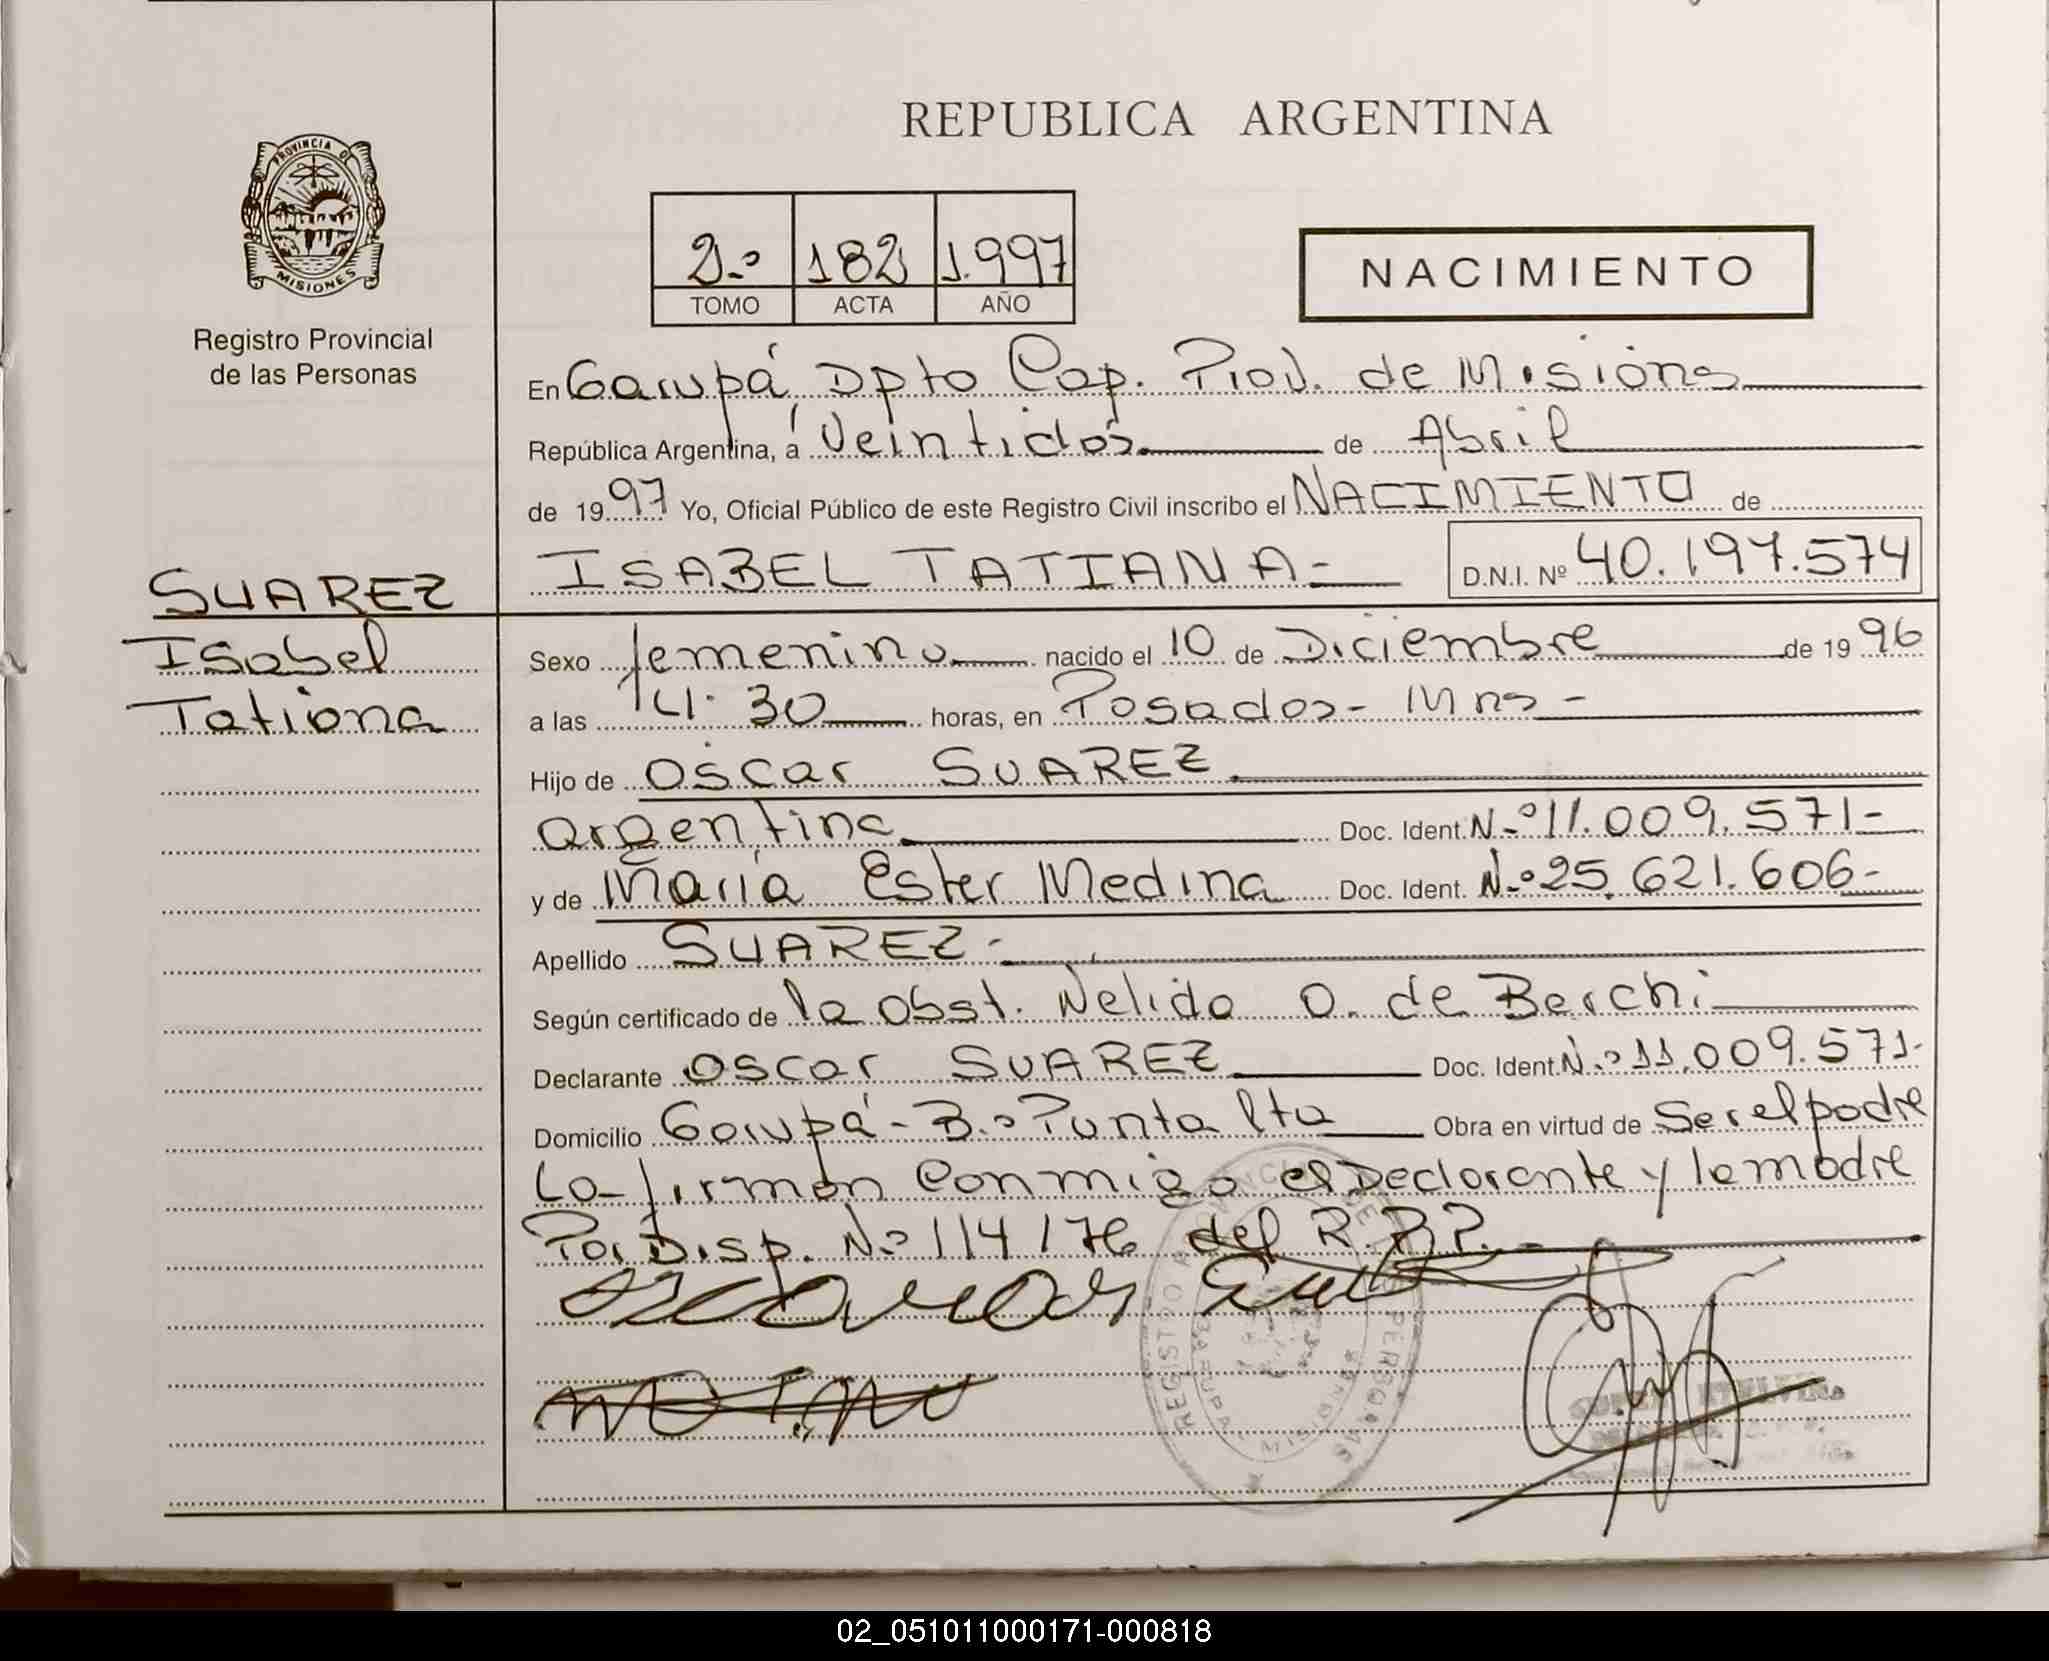 REPUBLICA ARGENTINA
PROVINCIA DE
MISIONES
Registro Provincial
de las Personas
2.º 182 1.997
TOMO ACTA AÑO
NACIMIENTO
En Garupá, Dpto Cap. Prov. de Misiones
República Argentina, a Veintidós de Abril
de 1997 Yo, Oficial Público de este Registro Civil inscribo el NACIMIENTO de
ISABEL TATIANA- D.N.I. Nº 40.197.574
SUAREZ
Isabel
Tatiana
Sexo femenino nacido el 10 de Diciembre de 1996
a las 14:30 horas, en Posadas- Mnes -
Hijo de Oscar SUAREZ
argentina Doc. Ident. N.º 11.009.571-
y de María Ester Medina Doc. Ident. N.º 25.621.606-
Apellido SUAREZ-
Según certificado de la Obst. Nelida O. de Berchi
Declarante Oscar SUAREZ Doc. Ident. N.º 11.009.571-
Domicilio Garupá - B.º Punta lta Obra en virtud de Ser el padre
La firman Conmigo el Declarante y la madre
Por Disp. N.º 114/76 del R.P.P. -
REGISTRO PROVINCIAL DE LAS PERSONAS
GARUPA MISIONES
02_051011000171-000818